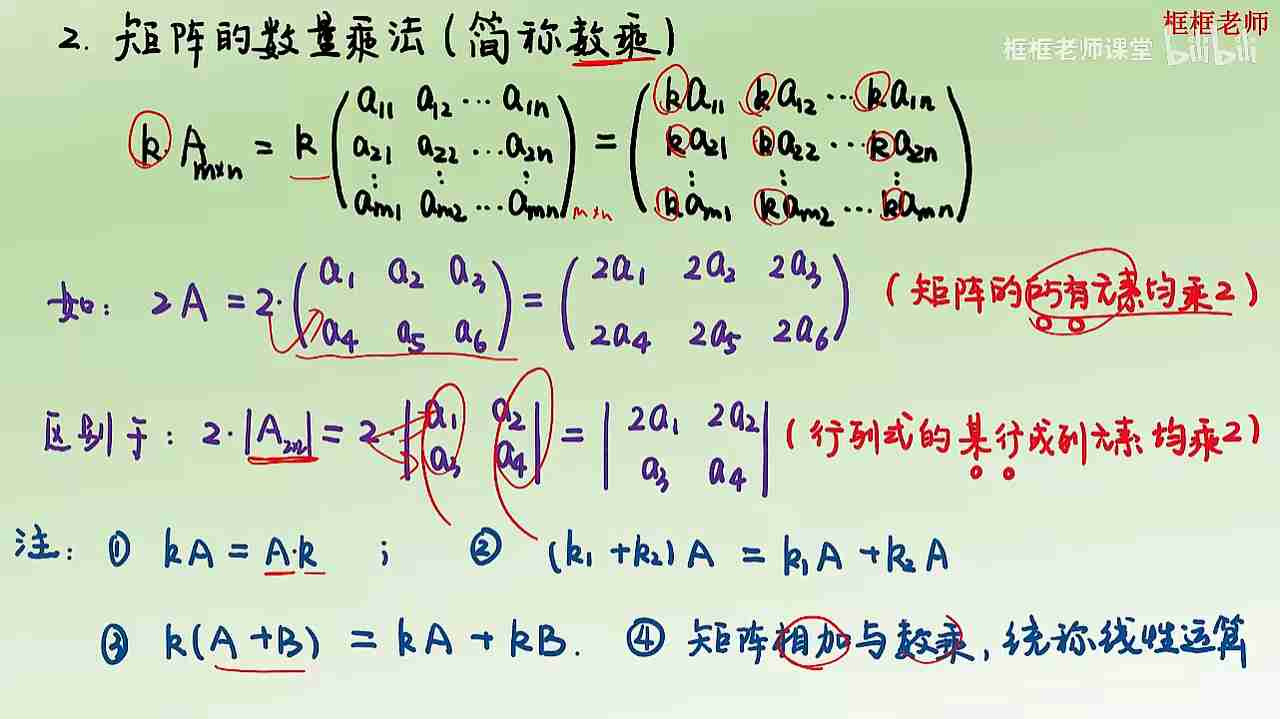 框框老师
框框老师课堂 bilibili
2. 矩阵的数量乘法(简称数乘)
k A_{m×n} = k \begin{pmatrix} a_{11} & a_{12} & \cdots & a_{1n} \\ a_{21} & a_{22} & \cdots & a_{2n} \\ \vdots & \vdots & & \vdots \\ a_{m1} & a_{m2} & \cdots & a_{mn} \end{pmatrix}_{m×n} = \begin{pmatrix} ka_{11} & ka_{12} & \cdots & ka_{1n} \\ ka_{21} & ka_{22} & \cdots & ka_{2n} \\ \vdots & \vdots & & \vdots \\ ka_{m1} & ka_{m2} & \cdots & ka_{mn} \end{pmatrix}
如: 2A = 2·\begin{pmatrix} a_1 & a_2 & a_3 \\ a_4 & a_5 & a_6 \end{pmatrix} = \begin{pmatrix} 2a_1 & 2a_2 & 2a_3 \\ 2a_4 & 2a_5 & 2a_6 \end{pmatrix} (矩阵的所有元素均乘2)
区别于: 2·|A_{2×2}| = 2·\begin{vmatrix} a_1 & a_2 \\ a_3 & a_4 \end{vmatrix} = \begin{vmatrix} 2a_1 & 2a_2 \\ a_3 & a_4 \end{vmatrix} (行列式的某行或列元素均乘2)
注: ① kA = A·k ; ② (k_1+k_2)A = k_1A + k_2A
③ k(A+B) = kA + kB. ④ 矩阵相加与数乘,统称线性运算